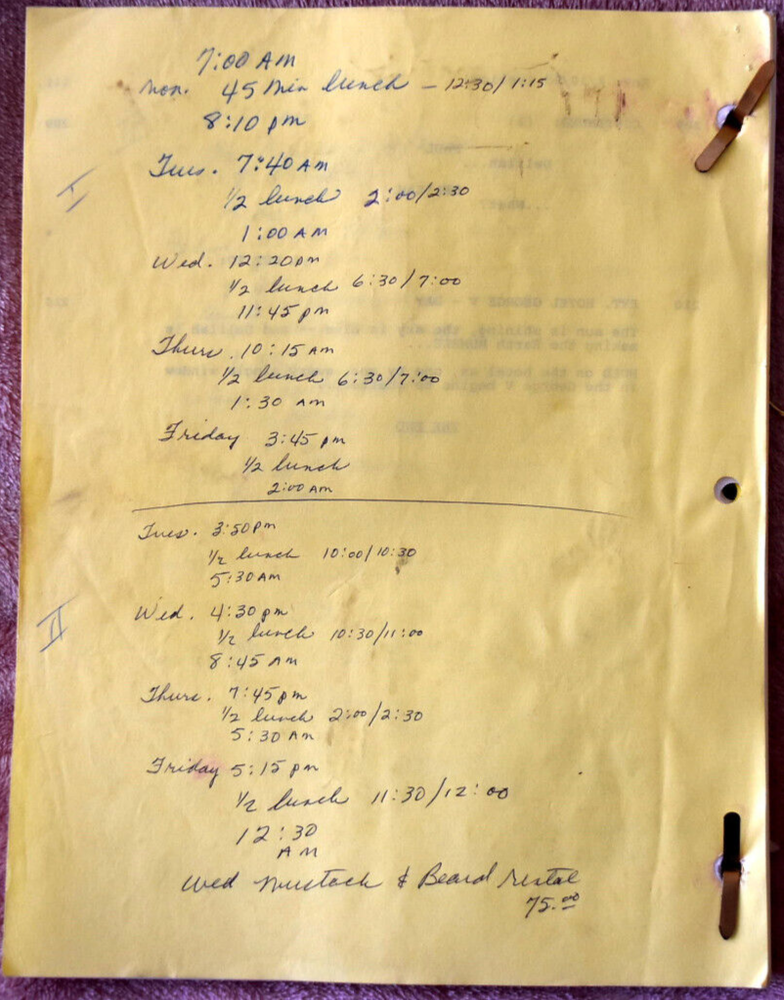 7:00 AM
Mon. 45 Min lunch - 12:30/1:15
8:10 pm
I
Tues. 7:40 AM
1/2 lunch 2:00/2:30
1:00 AM
Wed. 12:20pm
1/2 lunch 6:30/7:00
11:45 pm
Thurs. 10:15 AM
1/2 lunch 6:30/7:00
1:30 AM
Friday 3:45 pm
1/2 lunch
2:00 AM
Tues. 3:50pm
1/2 lunch 10:00/10:30
5:30 AM
II
Wed. 4:30 pm
1/2 lunch 10:30/11:00
8:45 AM
Thurs. 7:45pm
1/2 lunch 2:00/2:30
5:30 AM
Friday 5:15 pm
1/2 lunch 11:30/12:00
12:30
AM
Wed Mustach & Beard Rental
75.00